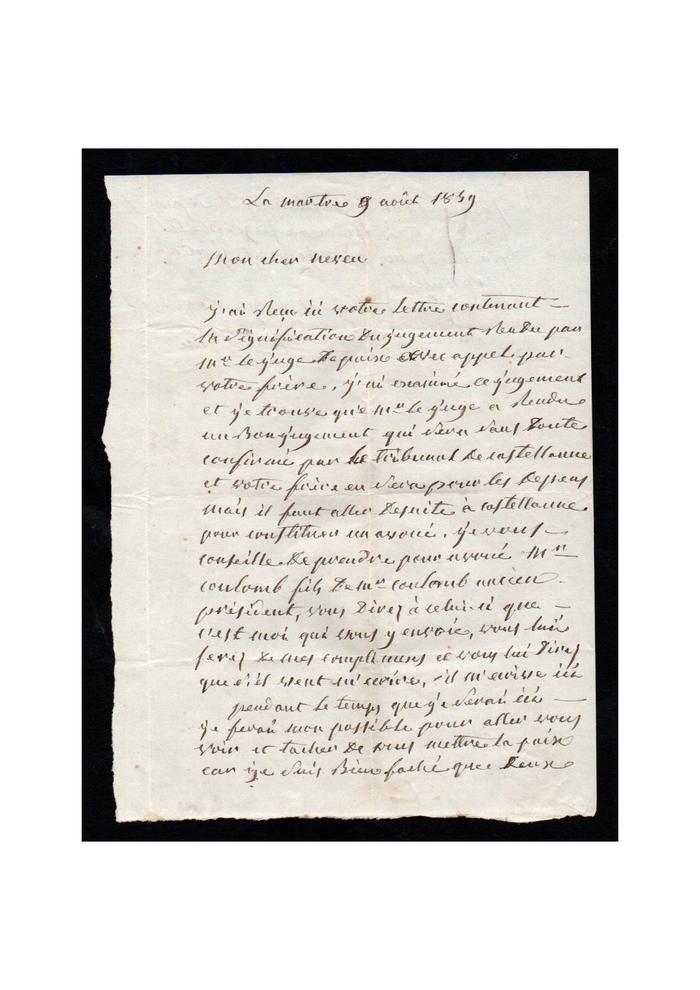 La martre 9 août 1859
Mon cher neveu
j'ai Reçu ici votre Lettre contenant
la Signification Du jugement Rendu par
Mr le juge De paix avec appel par
votre frère, j'ai examiné ce jugement
et je trouve que Mr le juge a Rendu
un Bon jugement qui sera sans Doute
confirmé par le tribunal De castellanne
et votre frère en sera pour les Depens
mais il faut aller Desuite à castellanne
pour constituer un avoué, je vous
conseille De prendre pour avoué Mr
coulomb fils De Mr coulomb ancien
président, vous Direz à celui-ci que
c'est moi qui vous y envoie, vous lui
ferez De mes complimens et vous lui Direz
que s'il veut m'écrire, il m'écrive ici
pendant le temps que je serai ici
je ferai mon possible pour aller vous
voir et tacher De vous mettre la paix
car je suis Bien faché que Deux